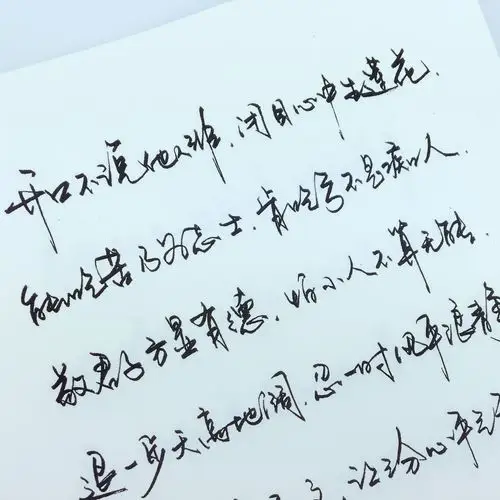 开口不说他人，闭目心中生莲花.
能吃苦乃为志士，肯吃亏不是痴人.
敬君子方显有德，怕小人不算无能.
退一步天高地阔，忍一时风平浪静
让三分心平气